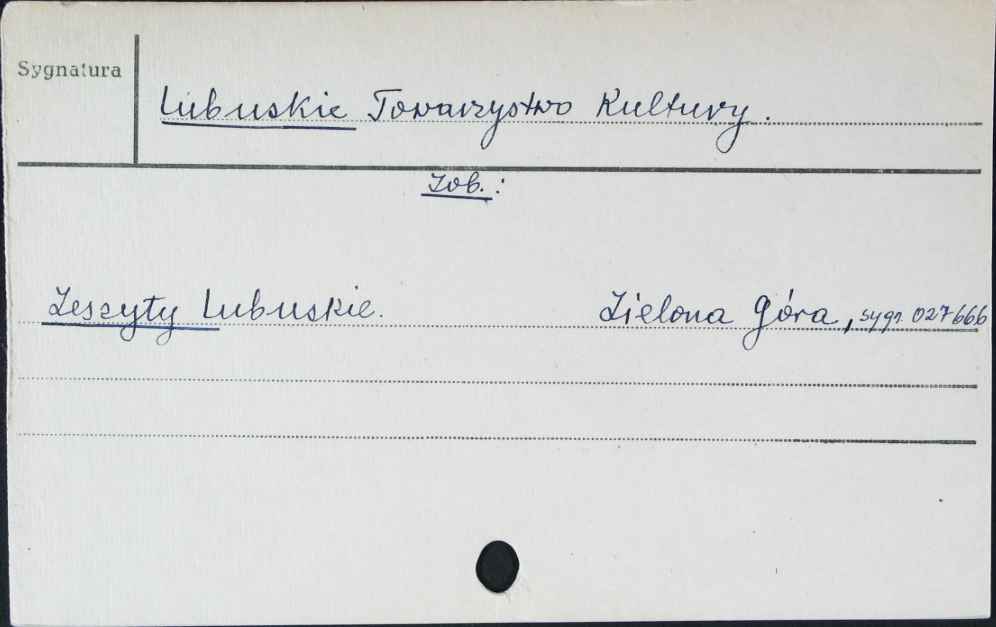 Sygnatura
Lubuskie Towarzystwo Kultury.
Zob.:
Zeszyty Lubuskie. Zielona Góra, sygn. 027666